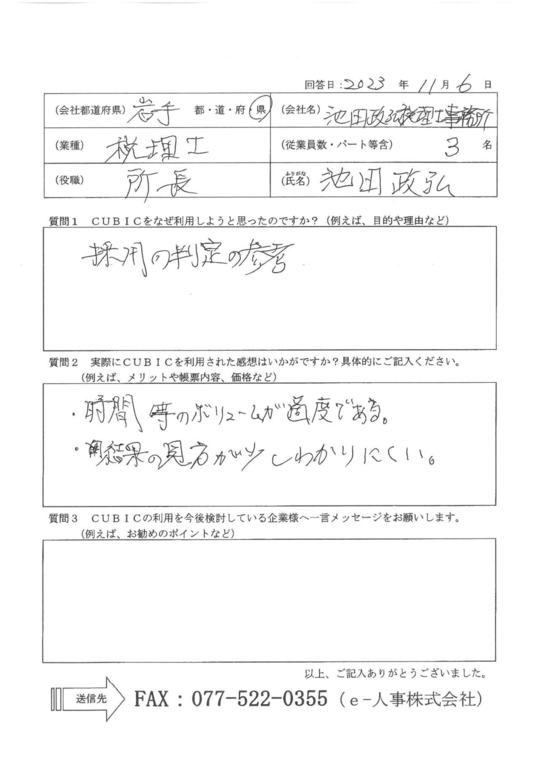 回答日：2023 年 11月 6 日
(会社都道府県) 岩手 都・道・府・県 (会社名) 池田政弘税理士事務所
(業種) 税理士 (従業員数・パート等含) 3 名
(役職) 所長 (氏名) 池田政弘
質問１ ＣＵＢＩＣをなぜ利用しようと思ったのですか？（例えば、目的や理由など）
採用の判定の参考
質問２ 実際にＣＵＢＩＣを利用された感想はいかがですか？具体的にご記入ください。
（例えば、メリットや帳票内容、価格など）
・時間等のボリュームが適度である。
・結果の見方が少しわかりにくい。
質問３ ＣＵＢＩＣの利用を今後検討している企業様へ一言メッセージをお願いします。
（例えば、お勧めのポイントなど）
以上、ご記入ありがとうございました。
送信先 FAX：077-522-0355（ｅ-人事株式会社）